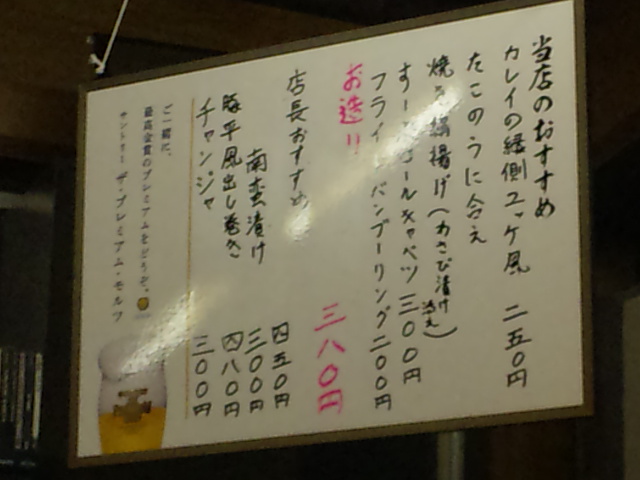 当店のおすすめ
カレイの縁側ユッケ風 二五〇円
たこのうに合え
揚げ(わさび漬け添え)
キャベツ 三〇〇円
バンブーリング 二〇〇円
お造り 三八〇円
店長おすすめ 四五〇円
南蛮漬け 三〇〇円
豚平風出し巻き 四八〇円
チャンジャ 三〇〇円
ご一緒に、
最高金賞のプレミアムをどうぞ。
サントリー ザ・プレミアム・モルツ